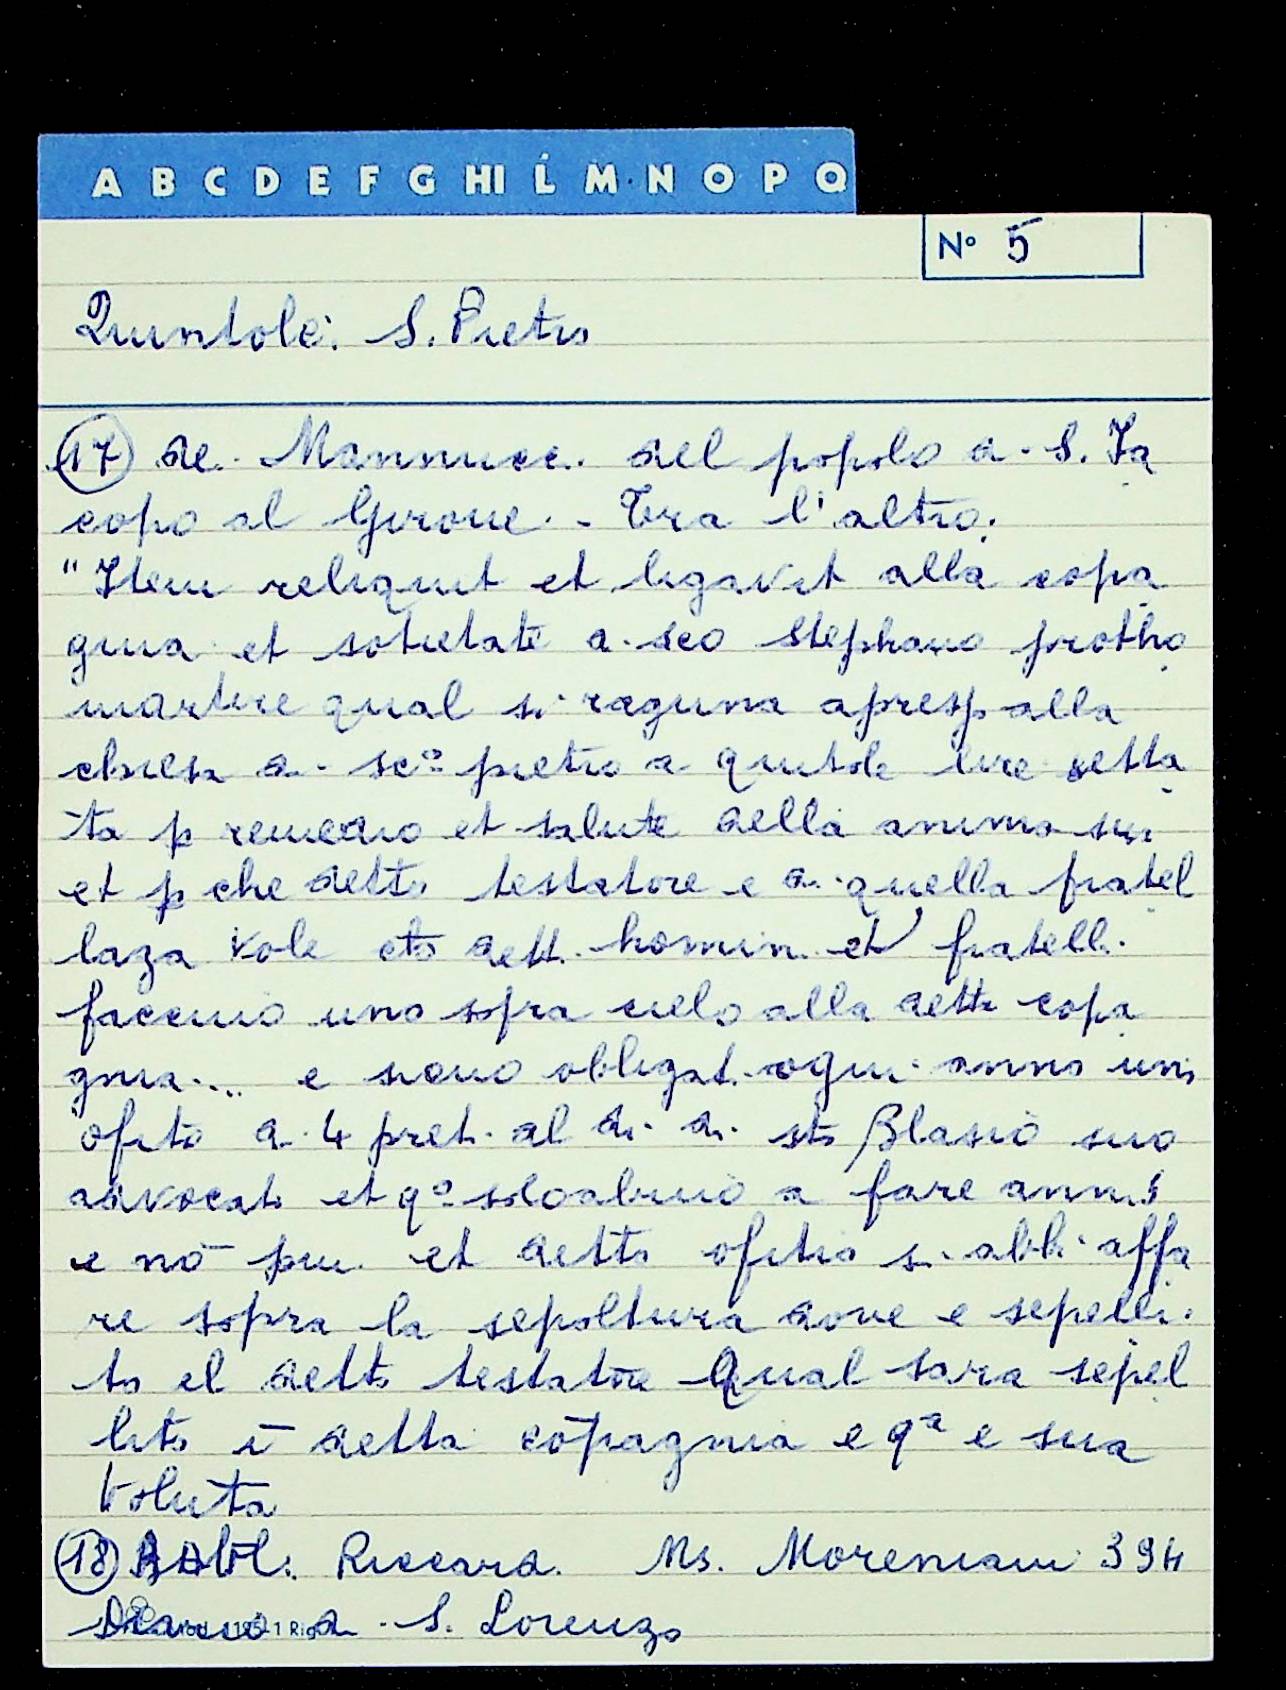 A B C D E F G HI L M N O P Q
Nº 5
Quintole: S. Pietro
17 de Mannucci del popolo di S. Ja
copo al Girone. - Tra l'altro:
"Item reliquit et legavit alla copa
gnia et sotietate di sco Stephano protho
martire qual si raguna apresso alla
chiesa di scº pietro a quitole lire setta
ta p remedio et salute della anima sua
et p che detto testatore e di quella fratel
laza vole cto detti homini et fratelli
faccino uno sopra cielo alla detta copa
gnia... e siano obligati ogni anno uno
ofitio di 4 preti al di di sto Blasio suo
advocato et qº solo abino a fare anni 5
e nō piu et detto ofitio si abbi affa
re sopra la sepoltura dove e sepelli
to el detto testatōre Qual sara sepel
lito ī detta cōpagnia e qª e sua
volūta
18 Bibl. Riccard. Ms. Moreniani 394
Diario di S. Lorenzo